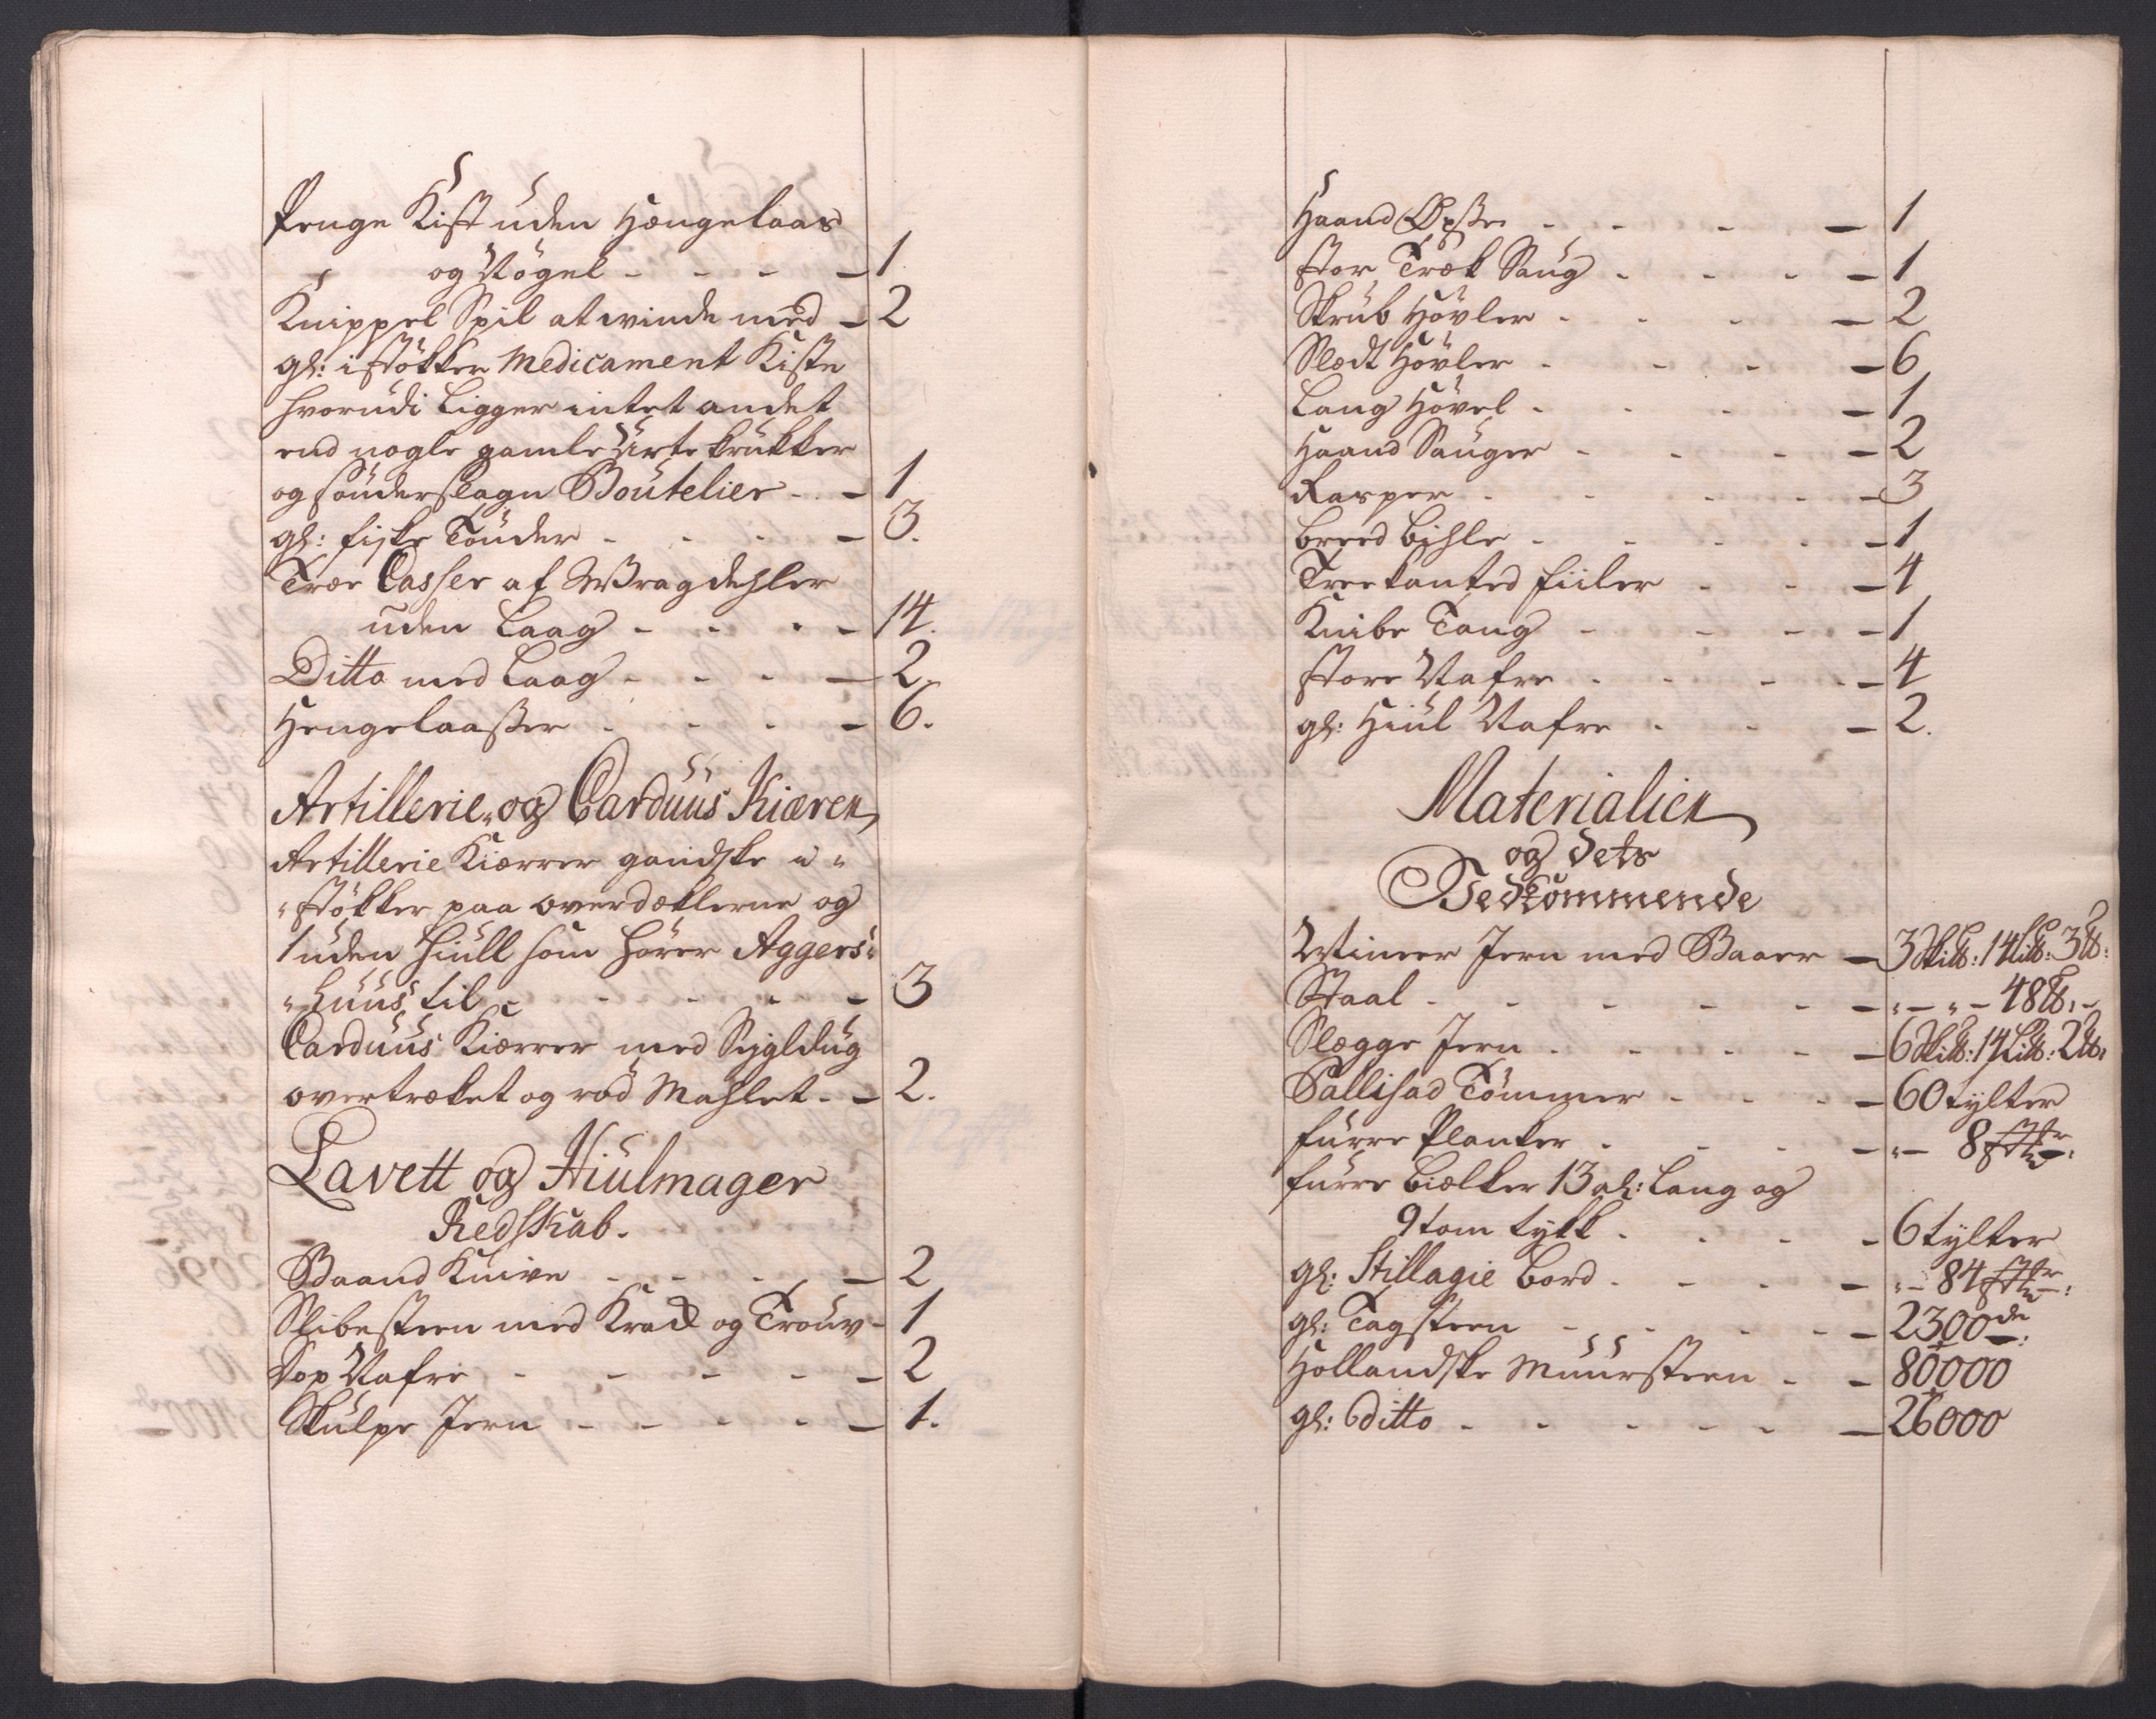 Penge Kist uden Hængelaas
og Nøgel - - - - 1
Knippel Spil at winde med - 2
gl: i støkker Medicament Kiste
hvorudi Ligger intet andet
end nogle gamle Urtekrukker
og sønderslagn Boutelier - - 1
gl: fiske Tønder - - - - 3.
Træe Casser af Wragdehler
uden Laag - - - - 14.
Ditto med Laag - - - - 2.
Hengelaasser - - - - 6.
Artillerie- og Carduus Kiæren
Artillerie Kiærrer gandske i-
-støkker paa overdæklerne og
1 uden Hiull som hører Aggers-
-huus til - - - - - 3
Carduus Kiærrer med Sejgldug
overtræket og rød Mahlet - - 2.
Lavett og Hiulmager
Redskab.
Baand Knive - - - - 2
Slibesteen med Krack og Trouv - 1
Sop Nafre - - - - - 2
Skulpe Jern - - - - - 1.
Haand Øxsse - - - - 1
stor Træk Saug - - - - 1
Skrub Høvler - - - - 2
Slædt Høvler - - - - 6
Lang Høvel - - - - 1
Haand Sauger - - - - 2
Rasper - - - - - 3
breed bihle - - - - - 1
Treekanted fiiler - - - 4
Knibe Tang - - - - 1
store Nafre - - - - 4
gl: Hiul Nafre - - - 2.
Materialier
og dets
Vedkommende
Wineer Jern med Baaer - 3 Sk℔: 14 Li℔: 3 ℔:
Staal - - - - - - " - " - 48 ℔: -
Slægge Jern - - - - - 6 Sk℔: 14 Li℔: 2 ℔:
Pallisad Tømmer - - - - 60 tylter
furre Planker - - - - " - 8 st:
furre bielker 13 al: lang og
9 tom tykk - - - - 6 tylter
gl: Stillagie bord - - - - " - 84 st:
gl: Tagsteen - - - - - 2300 de:
Hollandske Muursteen - - 80000
gl: Ditto - - - - - - 26000